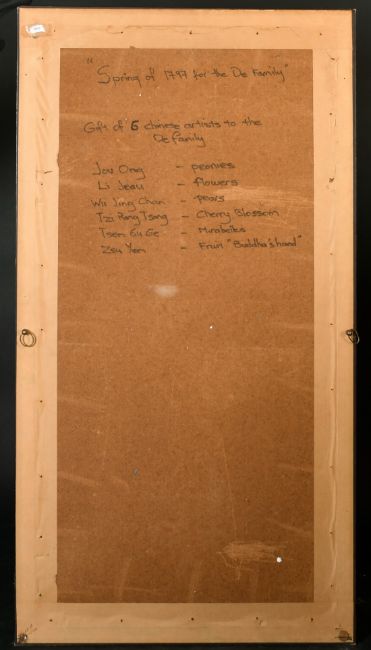 "Spring of 1797 for the De Family"
Gift of 6 chinese artists to the
De family
Jou Ong - peonies
Li Jeau - flowers
Wu Jing Chan - pears
Tzu Pang Tsang - Cherry Blossom
Tsen Gu Ge - Mirabelles
Zsu Yen - Fruit "Buddha's hand"